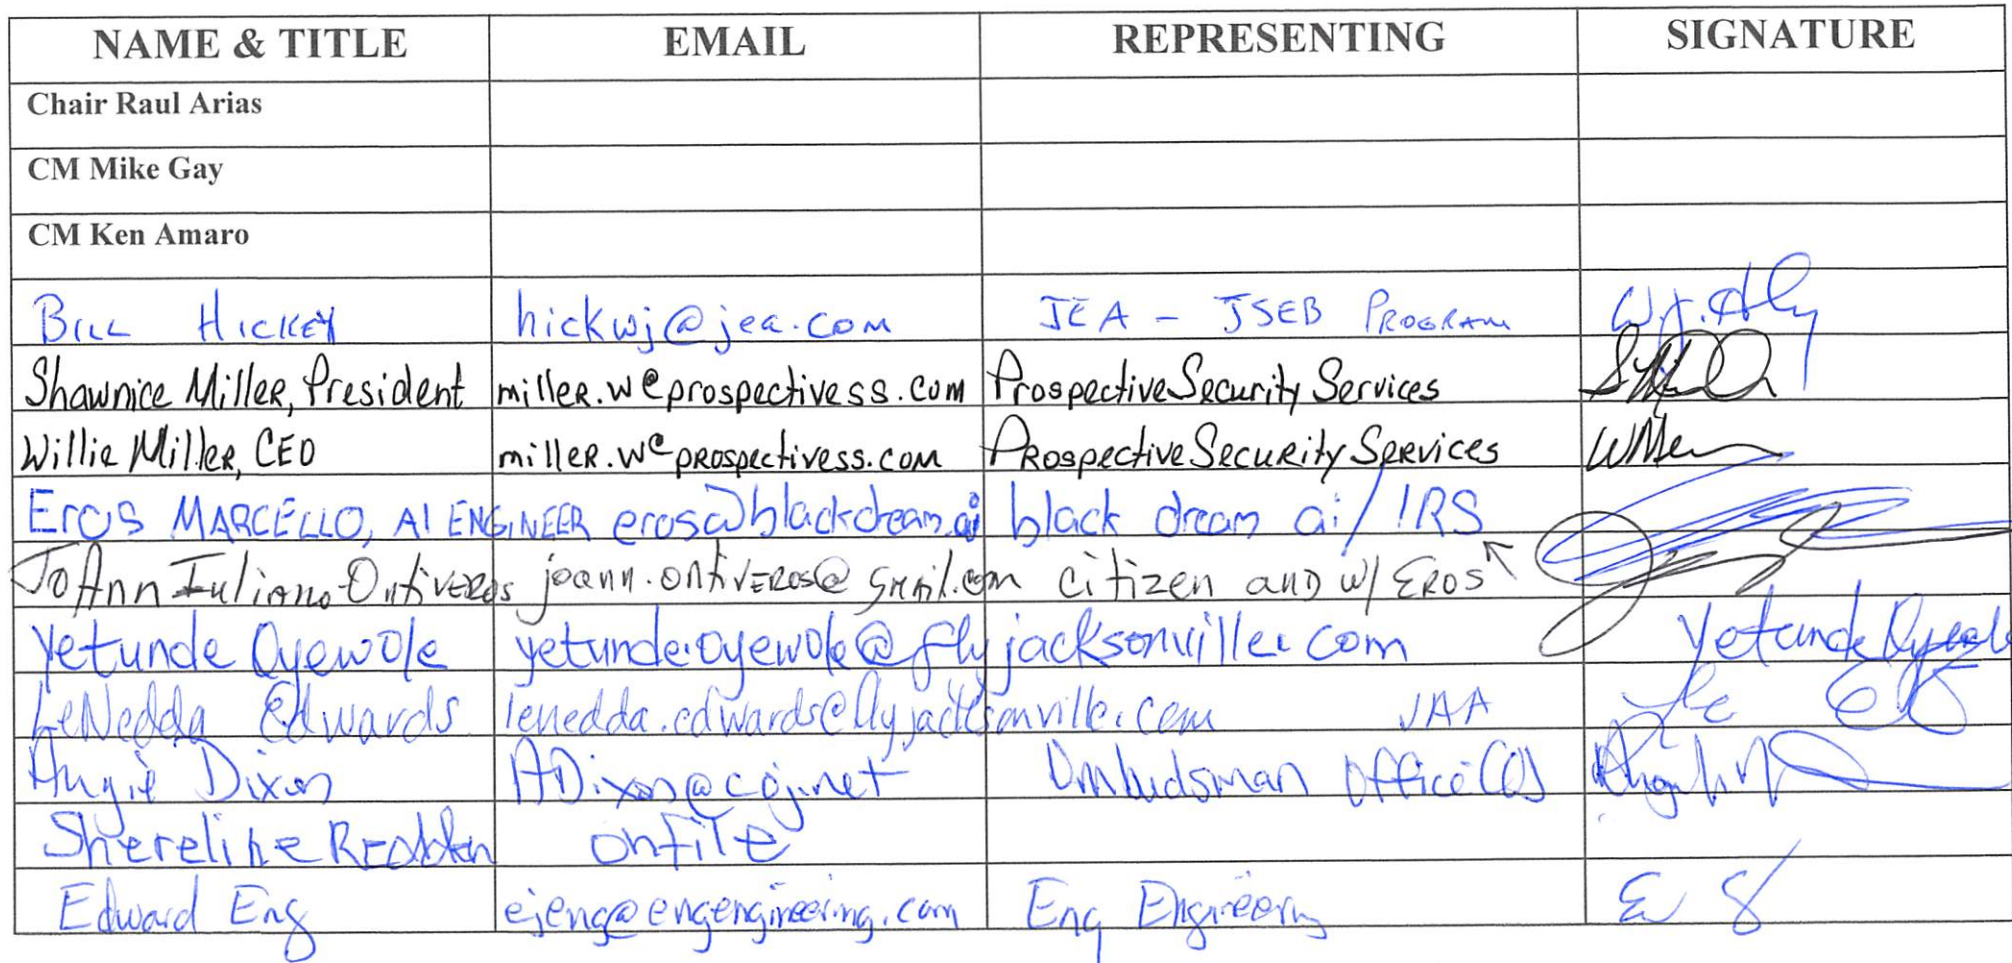 NAME & TITLE EMAIL REPRESENTING SIGNATURE
Chair Raul Arias
CM Mike Gay
CM Ken Amaro
Bill Hickey hickwj@jea.com JEA - JSEB Program
Shawnice Miller, President miller.w@prospectivess.com Prospective Security Services
Willie Miller, CEO miller.w@prospectivess.com Prospective Security Services
Eros MARCELLO, AI ENGINEER eros@blackdream.ai black dream ai / IRS
JoAnn Iuliano-Ontiveros joann.ontiveros@gmail.com citizen and w/ EROS
Yetunde Oyewole yetunde.oyewole@flyjacksonville.com Yetunde Oyewole
LeNedda Edwards lenedda.edwards@flyjacksonville.com JAA
Angie Dixon ADixon@coj.net Ombudsman Office
Shereline Redden onfile
Edward Eng ejeng@engengineering.com Eng Engineering